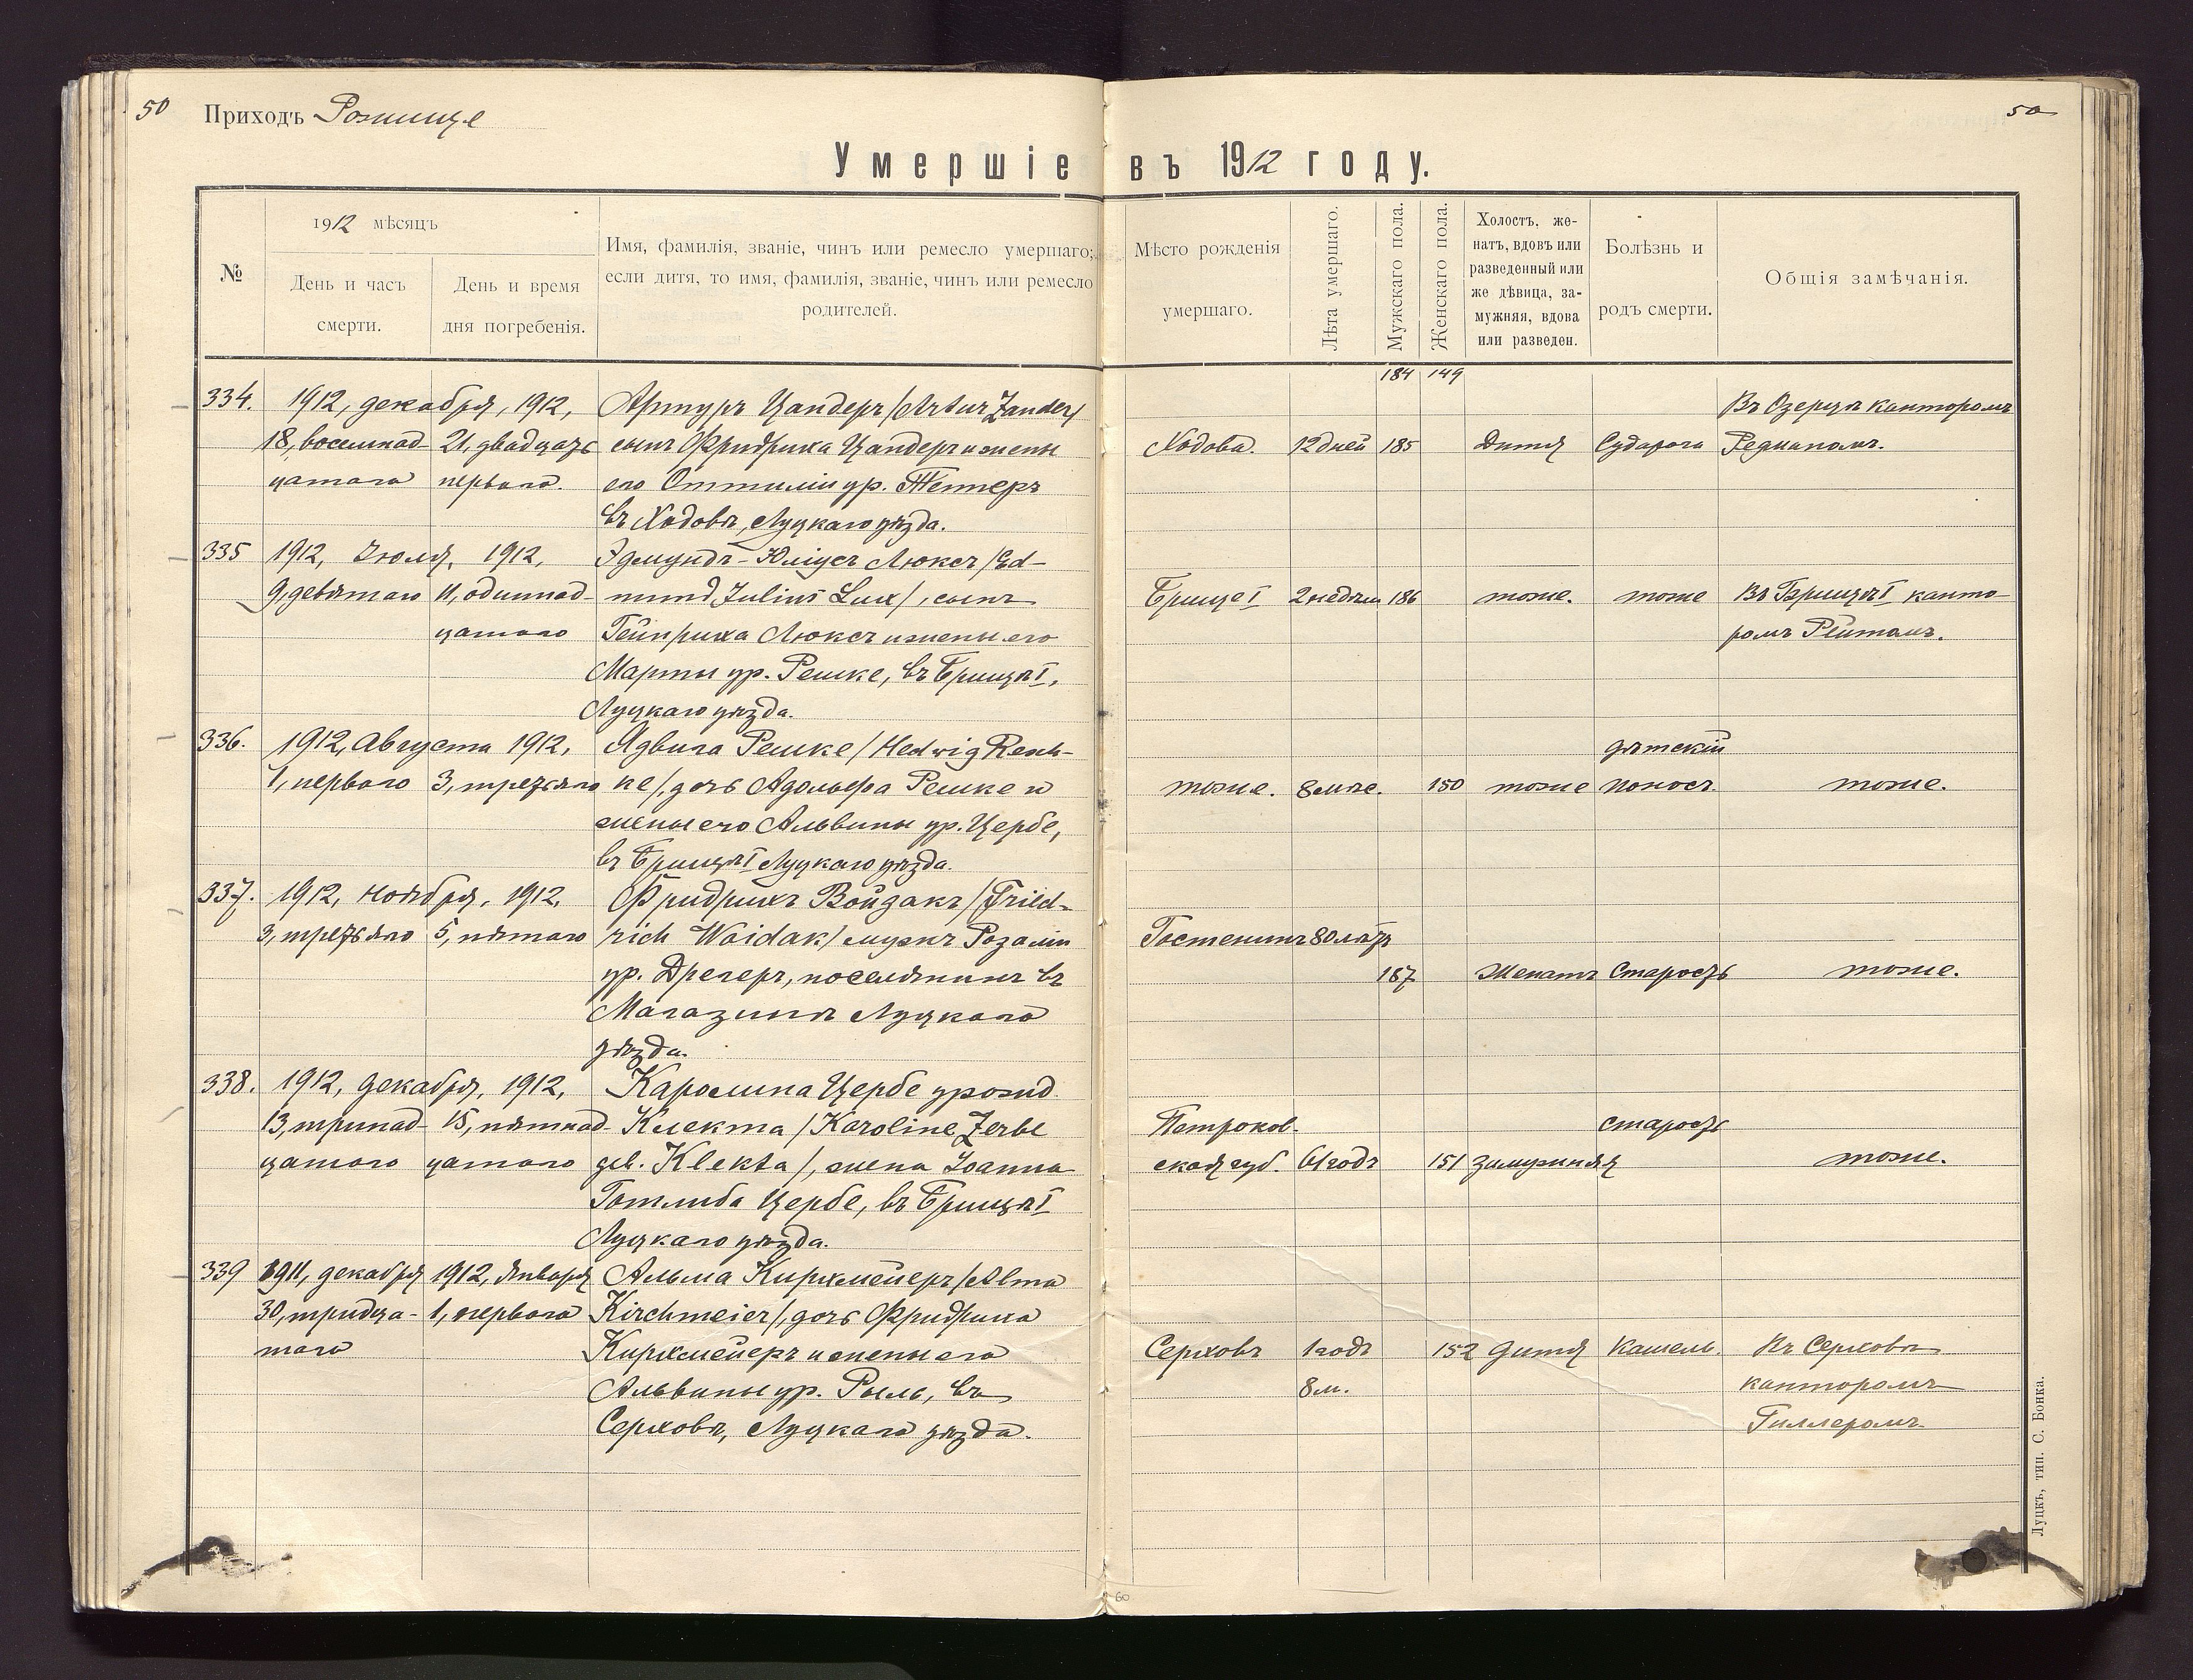 50 Приходъ Рожище
50
Умершіе въ 1912 году.
№
1912 мѣсяцъ
День и часъ
смерти.
День и время
дня погребенія.
Имя, фамилія, званіе, чинъ или ремесло умершаго;
если дитя, то имя, фамилія, званіе, чинъ или ремесло
родителей.
Мѣсто рожденія
умершаго.
Лѣта умершаго.
Мужскаго пола.
Женскаго пола.
Холостъ, же-
натъ, вдовъ или
разведенный или
же дѣвица, за-
мужняя, вдова
или разведен.
Болѣзнь и
родъ смерти.
Общія замѣчанія.
184 149
334. 1912, декабря, 1912, Артуръ Цандеръ /Artur Zander/ Въ Озерцѣ канторомъ
18, восемнад- 21, двадцать сынъ Фридриха Цандеръ и жены Ходова. 12 дней 185 Дитя Судорога
цатаго перваго. его Оттиліи ур.
въ Ходовѣ, Луцкаго уѣзда.
335 1912, Іюля, 1912, Эдмундъ-Юліусъ Люксъ /Ed-
9, девятаго 11, одиннад- mund Julius Lux/, сынъ Брище I 2 недѣли 186 тоже. тоже Въ Брищѣ I канто-
цатаго Гейнриха Люксъ и жены его ромъ Рейтомъ.
Марты ур. Решке, въ Брищѣ I,
Луцкаго уѣзда.
336. 1912, Августа 1912, Ядвига Решке /Hedwig Resh- дѣтскій
1, перваго 3, третьяго ke/, дочь Адольфа Решке и тоже. 8 мѣс. 150 тоже поносъ. тоже.
жены его Альвины ур. Цербе,
въ Брищѣ I Луцкаго уѣзда.
337. 1912, ноября, 1912, Фридрихъ Войдакъ /Fried-
3, третьяго 5, пятаго rich Woidak/ мужъ Розаліи Гостенинъ 80 лѣтъ
ур. Дрегеръ, поселянинъ въ 187 Женатъ Старость тоже.
Магазинѣ Луцкаго
уѣзда.
338. 1912, декабря, 1912, Каролина Цербе урожд.
13, тринад- 15, пятнад- Клекта /Karoline Zerbe Петроков- старость
цатаго цатаго geb. Klekta/, жена Іоанна ская губ. 61 годъ 151 замужняя тоже.
Готлиба Цербе, въ Брищѣ I
Луцкаго уѣзда.
339 1911, декабря 1912, января Альма Кирхмейеръ /Alma
30, тридца- 1, перваго Kirchmeier/, дочь Фридриха
таго Кирхмейеръ и жены его Серховъ 1 годъ 152 дитя Кашель. Въ Серховѣ
Альвины ур. Рыль, въ 8 м. канторомъ
Серховѣ, Луцкаго уѣзда. Гиллеромъ
Луцкъ, тип. С. Бонка.
60